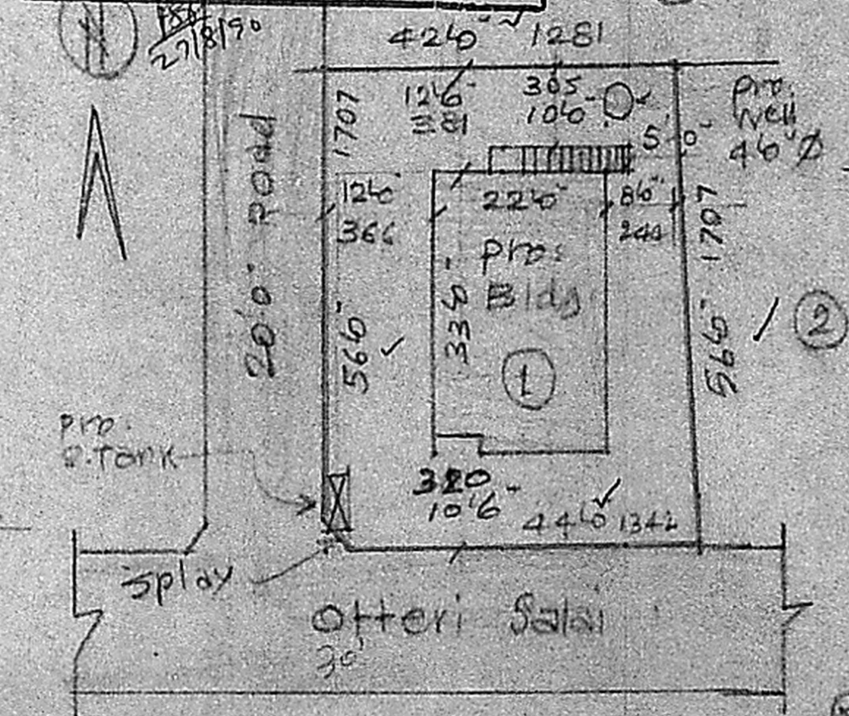 N
27/8/90
42'6" 1281
1707
12'6"
381
305
10'0"
pro.
well
4'6" Ø
5'0"
20'0" ROAD
12'0"
366
22'0"
8'0"
244
1707
pro:
Bldg
33'0"
1
56'0"
56'0"
2
pro.
S.Tank
320
10'6"
44'0" 1342
splay
Otteri Salai
30'